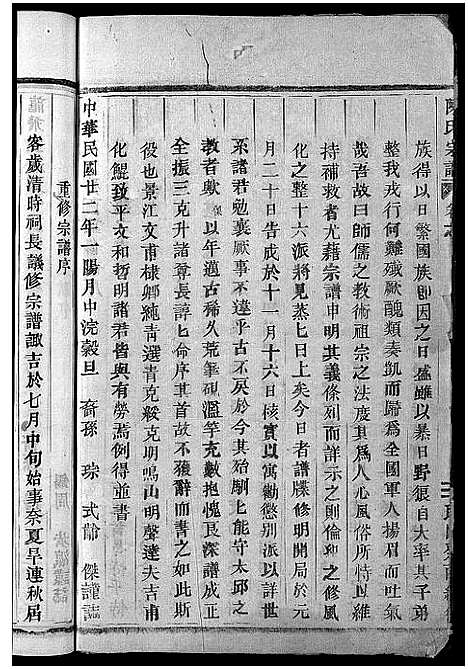 陳氏宗譜
族得以日繁國族即因之日盛雖以暴日野狠自大率其子弟
整我戎行何難殲厥醜類奏凱而歸爲全國軍人揚眉而吐氣
哉吾故曰師儒之教術祖宗之法度其爲人心風俗所恃以維
持補救者尤藉宗譜申明其義條列而詳示之則倫叙之修風
化之整十六派將見蒸七日上矣今日者譜牒修明開局於元
月二十日告成於十一月十六日核實以寓勸懲別派以詳世
系諸君勉襄厥事不遠乎古不戾於始馴上能守太邱之
教者歟 以年邁古稀久荒筆硯濫竽充數抱愧良深譜成
全振三克升諸尊長諄七命序其首故不獲辭而書之如此斯
役也景江文甫棣卿純青選青克毅克明鳴山明聲達夫吉甫
化鯤致平文和哲明諸君皆與有勞焉例得並書
中華民國廿二年一陽月中浣穀旦 裔孫 琮 式 傑謹誌
重修宗譜序
龍飛
客歲清時祠長議修宗譜諏吉於七月中旬始事奈夏旱連秋居